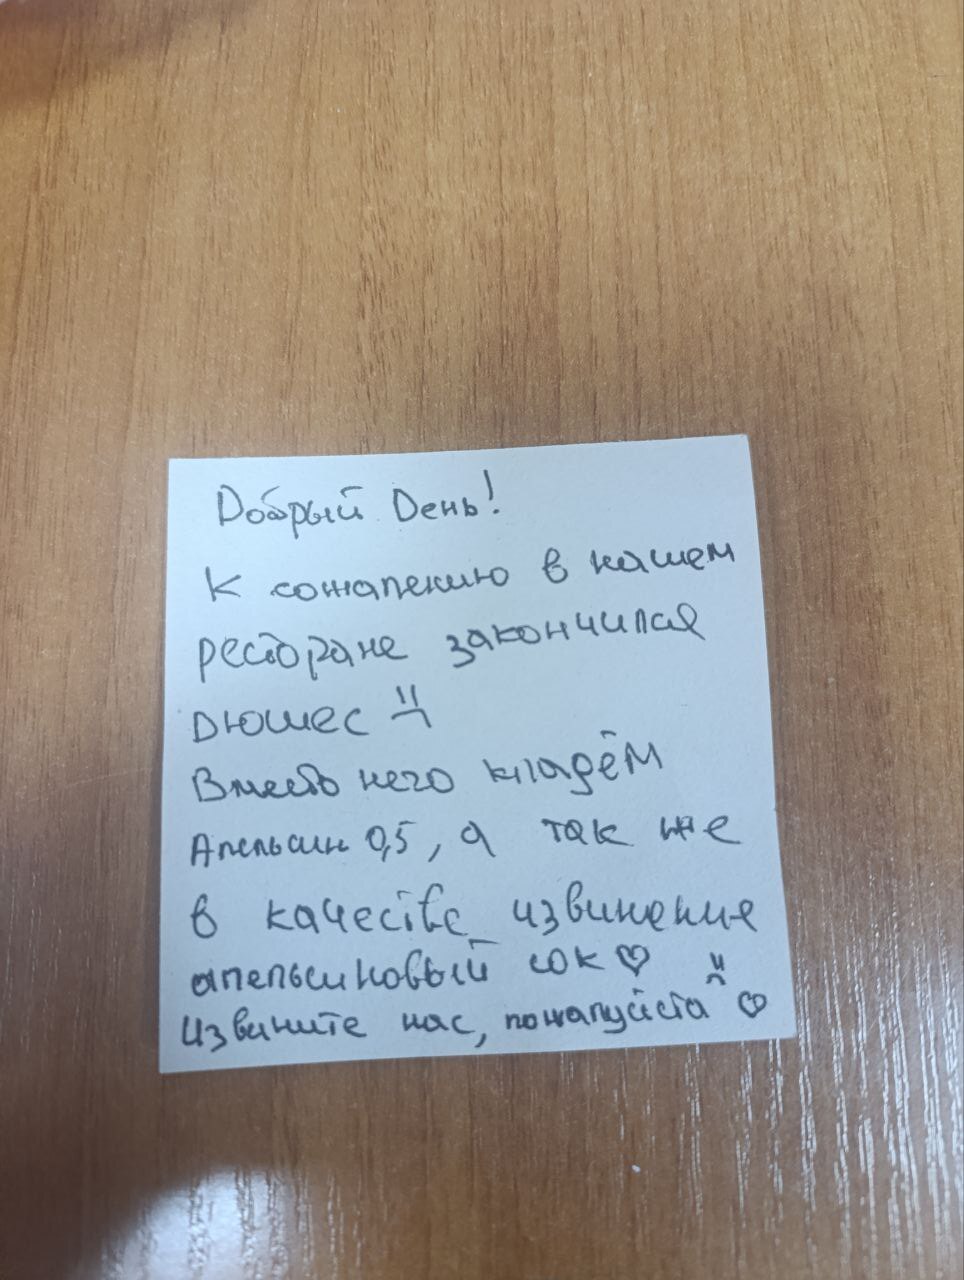 Добрый День!
К сожалению в нашем
ресторане закончился
Дюшес
Вместо него кладём
Апельсин 0,5, а так же
в качестве извинение
апельсиновый сок ♡
Извините нас, пожалуйста ♡